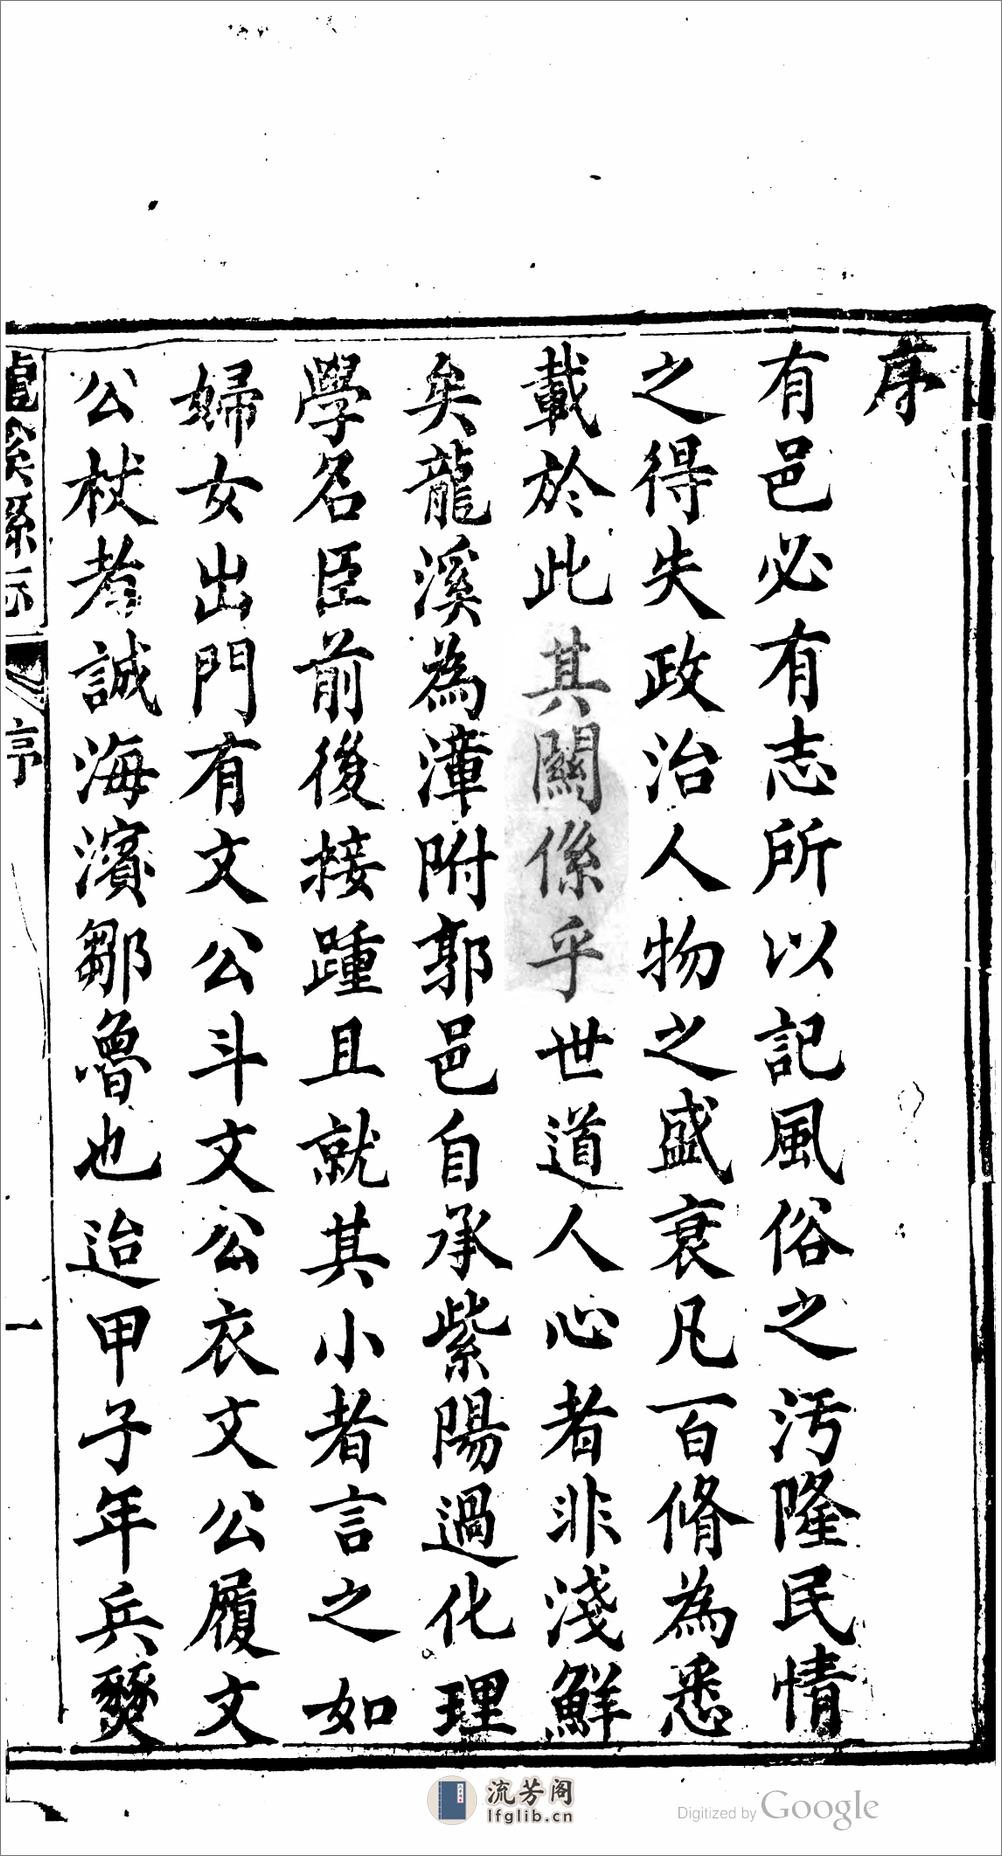 序
有邑必有志所以記風俗之汚隆民情
之得失政治人物之盛衰凡百脩為悉
載於此其關係乎世道人心者非淺鮮
矣龍溪為漳附郭邑自承紫陽過化理
學名臣前後接踵且就其小者言之如
婦女出門有文公斗文公衣文公履文
公杖者誠海濱鄒魯也迨甲子年兵燹
龍溪縣志
序
一
流芳阁
lfglib.cn
Digitized by Google